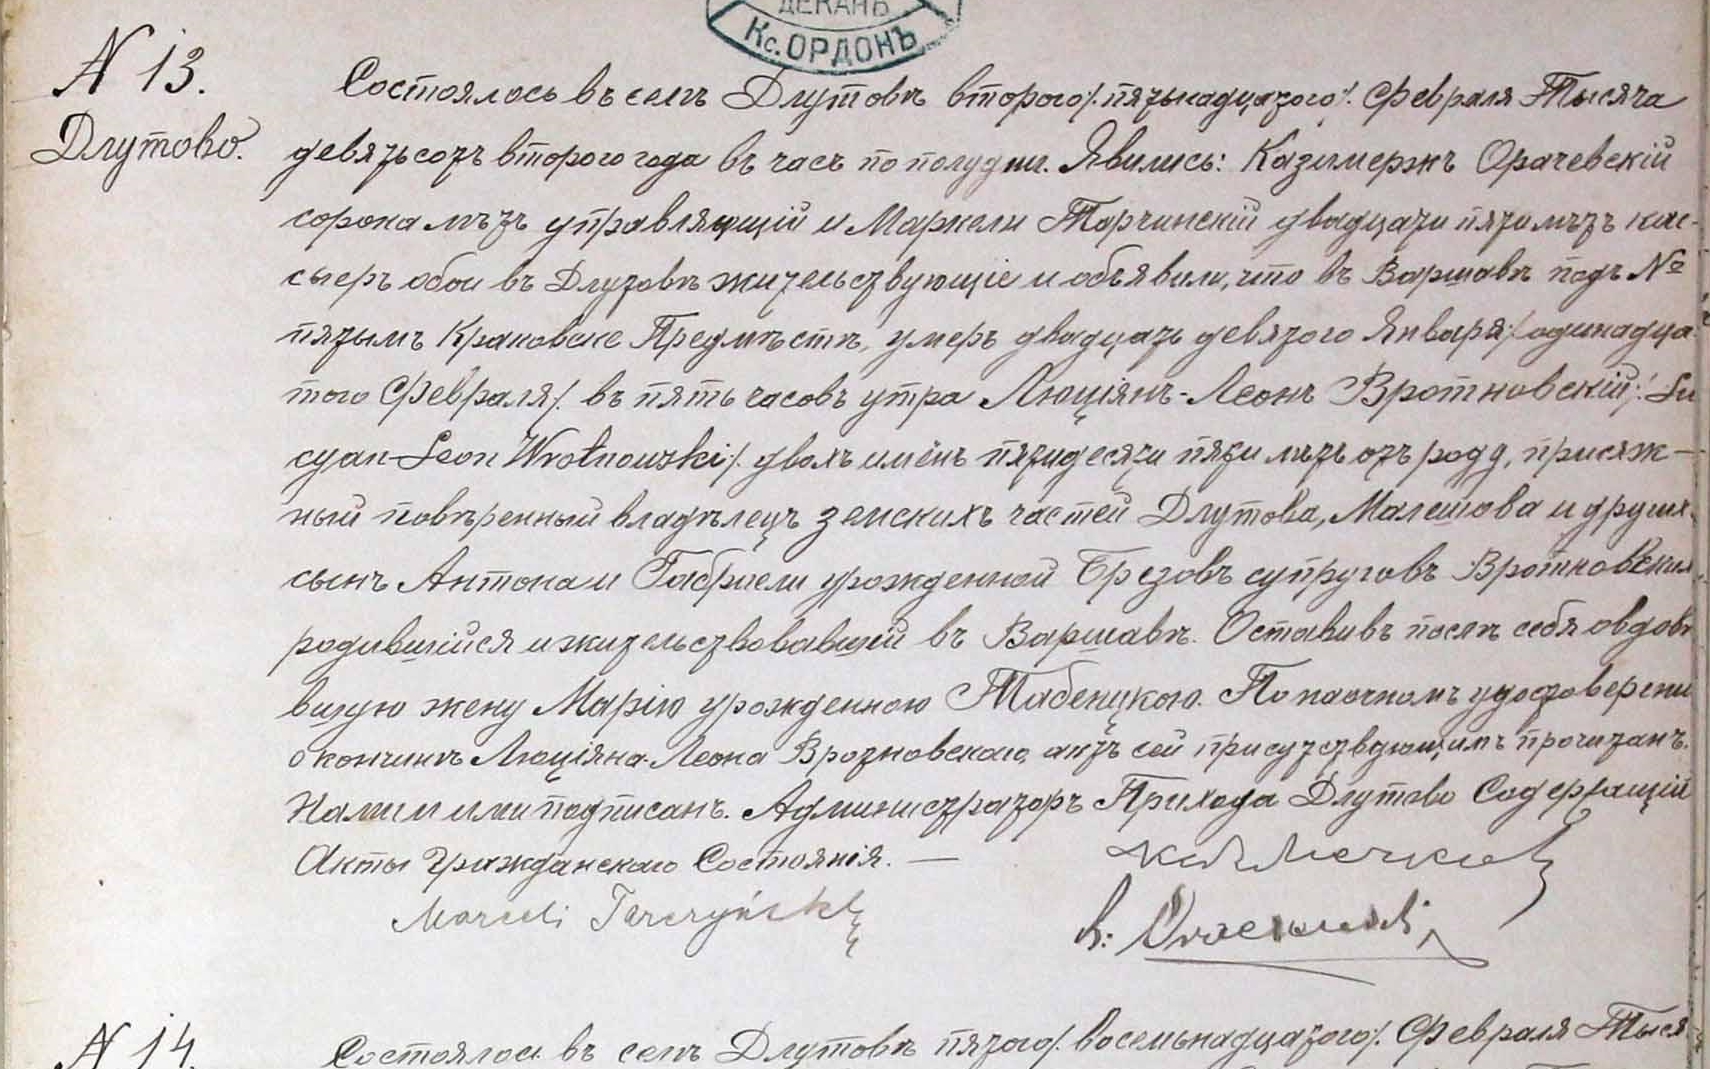 ДЕКАНЪ
Кс. ОРДОНЪ
N 13.
Длутово.
Состоялось въ селѣ Длутовѣ второго /: пятьнадцатого :/ Февраля Тысяча
девятьсотъ второго года въ часъ по полудни. Явились: Казимержъ Орачевскій
сорока лѣтъ управляющій и Маркели Тарчинскій двадцати пяти лѣтъ кас-
сьеръ обои въ Длутовѣ жительствующіе и объявили, что въ Варшавѣ подъ №
пятымъ Краковске Предмѣстѣ, умеръ двадцать девятого Января /: одинадца
того Февраля :/ въ пять часовъ утра Люціянъ-Леонъ Вротновскій /: Lu
cyan-Leon Wrotnowski :/ двохъ имёнъ пятидесяти пяти лѣтъ отъ роду, присяж-
ный повѣренный владѣлецъ земскихъ частей Длутова, Малешова и другихъ
сынъ Антона и Габріели урожденной Брезовъ супруговъ Вротновскихъ
родившійся и жительствовавшій въ Варшавѣ. Оставивъ послѣ себя овдовѣ
вшую жену Марію урожденною Табенцкою. По наочномъ удостоверени
о кончинѣ Люціяна-Леона Вротновскаго, актъ сей присутствующимъ прочитанъ.
Нами и ими подписанъ. Администраторъ Прихода Длутово Содержащій
Акты Гражданскаго Состоянія. —
Marceli Tarczyński
K. Oraczewski
N 14.
Состоялось въ селѣ Длутовѣ пятого /: восемьнадцатого :/ Февраля Тыся